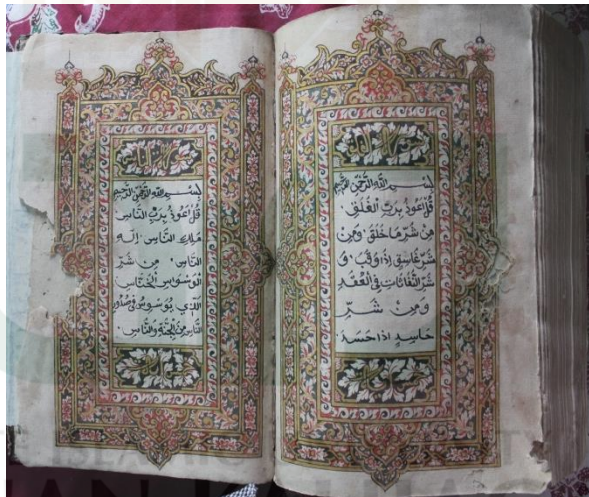 بسم الله الرحمن الرحيم
قل اعوذ برب الفلق
من شر ما خلق ومن
شر غاسق اذا وقب و
شر النفاثات في العقد
ومن شر
حاسد اذا حسد
بسم الله الرحمن الرحيم
قل اعوذ برب الناس
ملك الناس اله
الناس من شر
الوسواس الخناس
الذي يوسوس في صدور
الناس من الجنة والناس